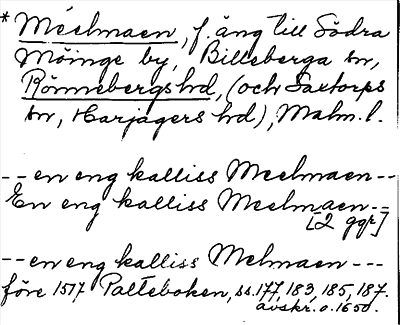 * Méelmaen, f. äng till Södra
Möinge by, Billeberga sn,
Rönnebergs hd, (och Saxtorps
sn, Harjagers hd), Malm. l.
-- en eng kalliss Meelmaen --
En eng kalliss Meelmaen --
[2 ggr]
-- en eng kalliss Melmaen ---
före 1517 Palteboken, ss. 177, 183, 185, 187.
avskr. o. 1650.